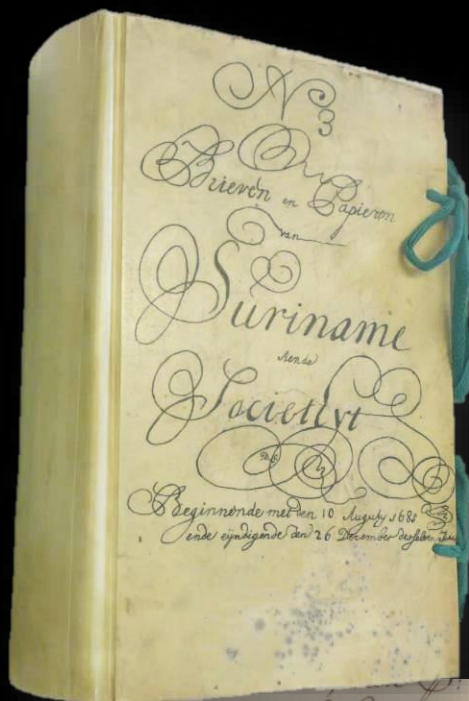 N 3
Brieven en Papieren
van
Suriname
Aende
Societeyt
Beginnende met den 10 Augusty 1685
ende eyndigende den 26 December desselven